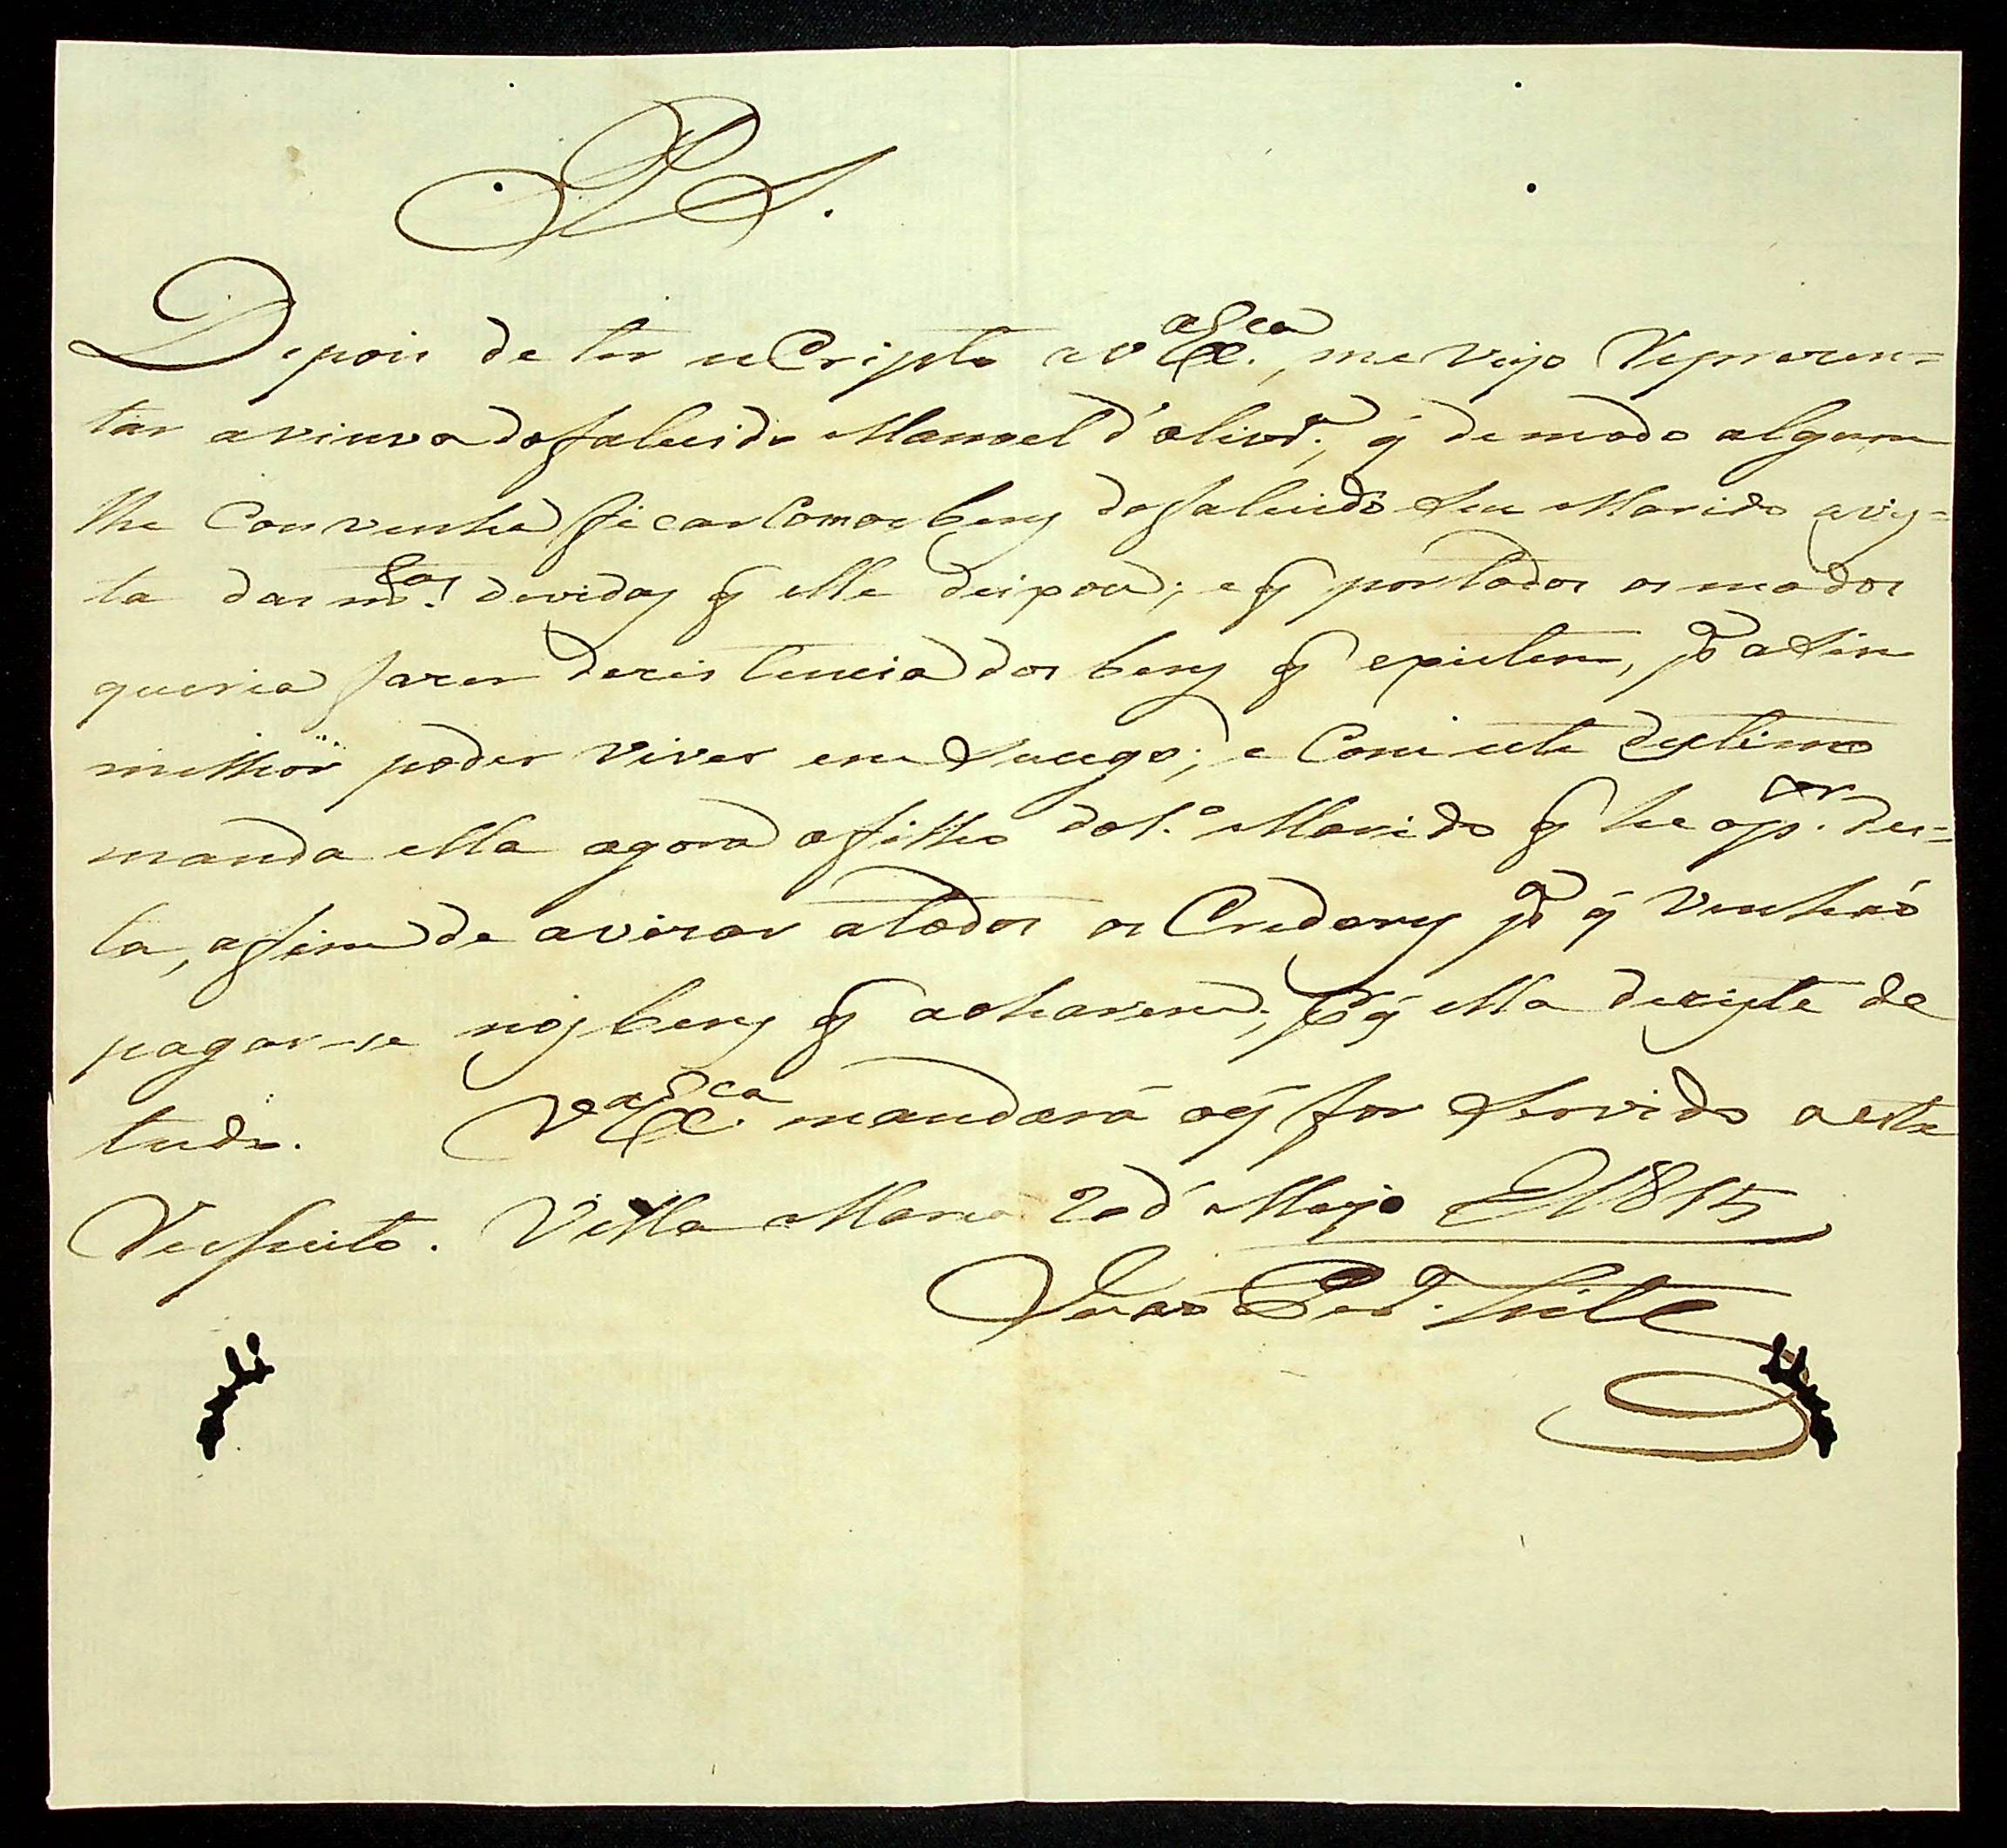 P. S.
Depois de ter escripto a V.ª Ex.ca, me veyo Represen=
tar a viuva do falecido Manoel d'Olivr.ª, q̃ de modo algum
lhe Convinha ficar Com os bens do falecido Seu Marido avis=
ta das m.tas dividas q̃ elle deixou; e q̃ por todos os modos
queria fazer dezistencia dos bens q̃ existem, p.ª asim
milhor poder viver em Sucego; e Com este destino
manda ella agora o filho do d.º Marido q̃ he o p.or des=
ta, afim de avizar atodos os Credores p.ª q̃ venhaõ
pagar-se nos bens q̃ acharem; p.r q̃ ella deziste de
tudo. V.ª Ex.ca mandará oq̃ for Servido a este
Respeito. Villa Maria 20 d' Mayo d' 1815
João Per.ª Leite